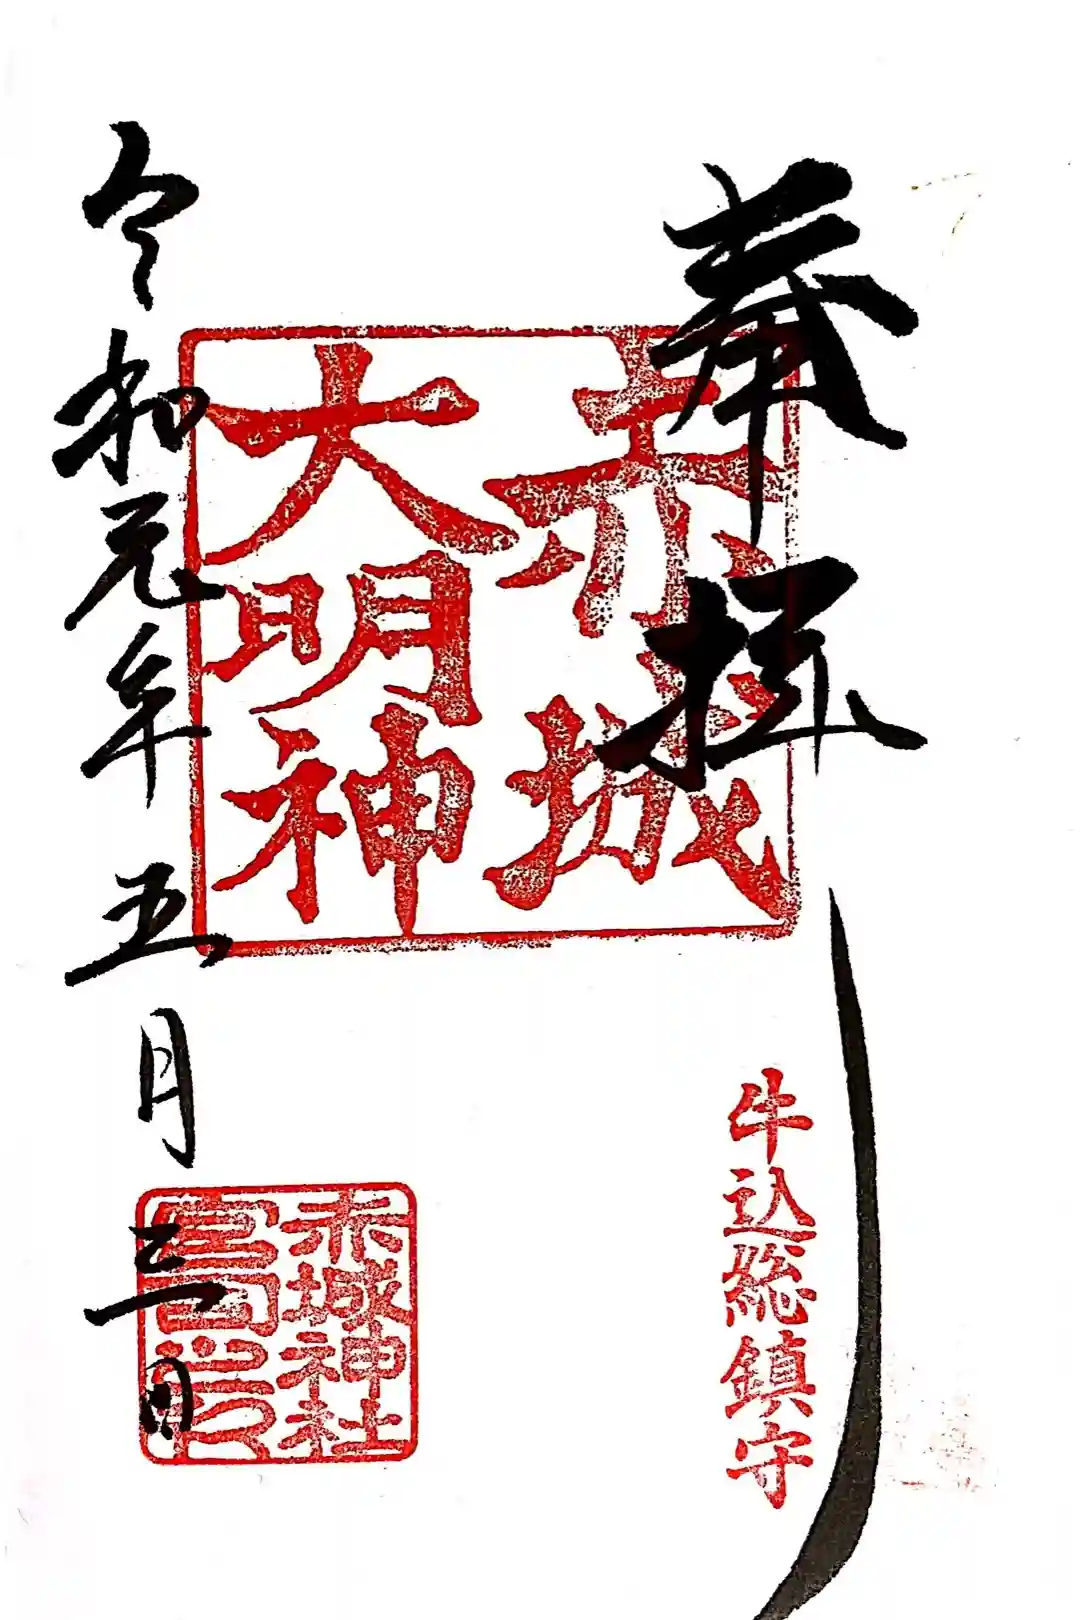 奉拝
牛込総鎮守
赤城
大明神
赤城神社
令和元年五月三日